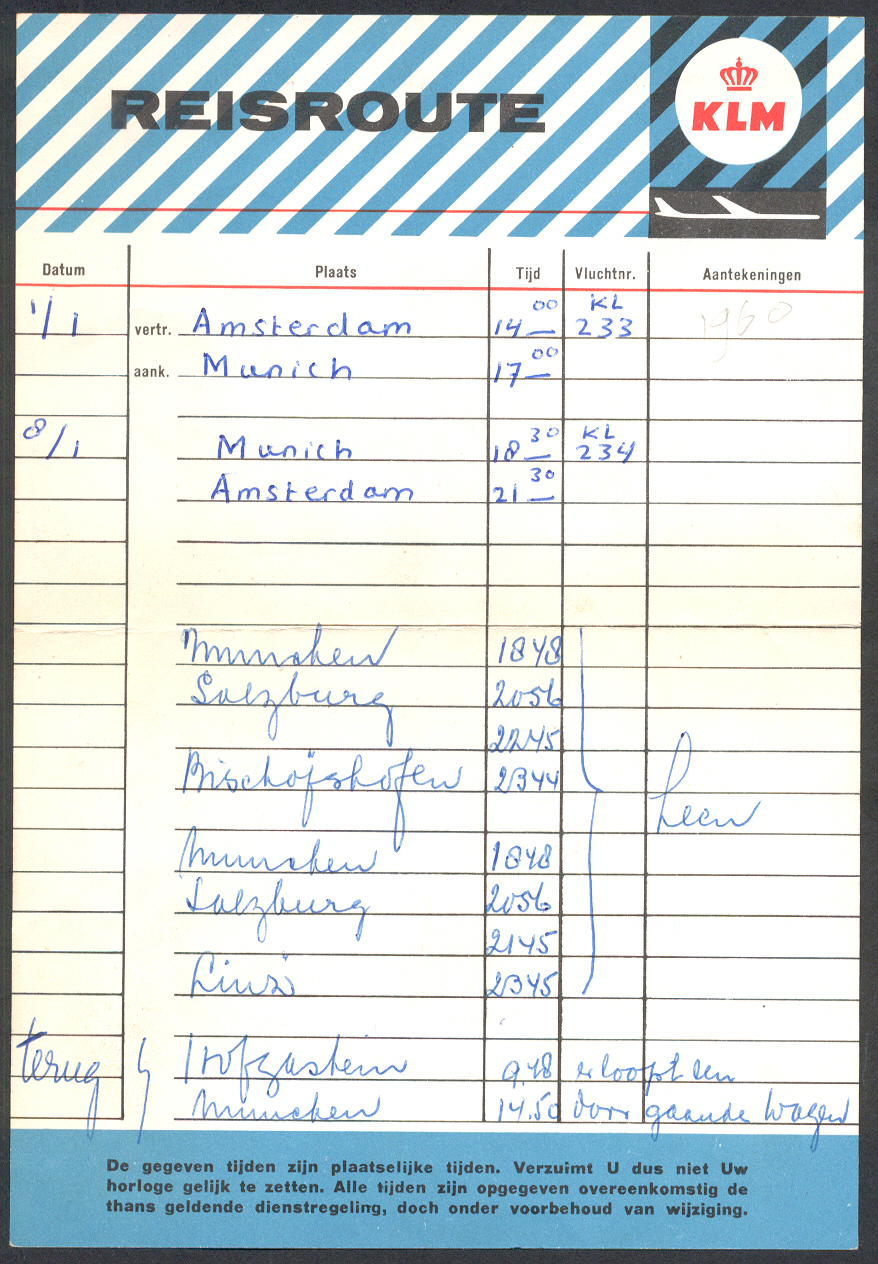 REISROUTE
KLM
Datum Plaats Tijd Vluchtnr. Aantekeningen
1/1 vertr. Amsterdam 14 00 KL 233 1960
aank. Munich 17 00
8/1 Munich 18 30 KL 234
Amsterdam 21 30
München 1848
Salzburg 2056
2245
Bischofshofen 2344
Leen
München 1848
Salzburg 2056
2145
Linz 2345
terug Hofgastein 9.48 er loopt een
München 14.50 door gaande wagen
De gegeven tijden zijn plaatselijke tijden. Verzuimt U dus niet Uw
horloge gelijk te zetten. Alle tijden zijn opgegeven overeenkomstig de
thans geldende dienstregeling, doch onder voorbehoud van wijziging.